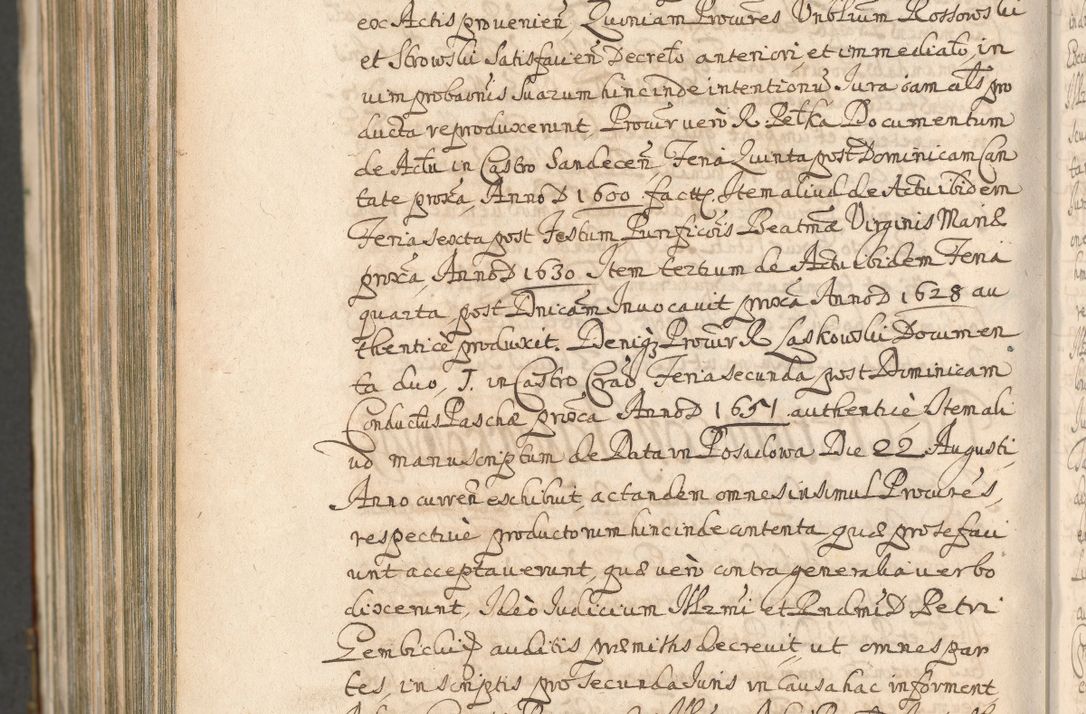 ex Actis provenien, Quoniam Procures Vnblium Rossowski
et Strowski Satisfacien Decreto anteriori, et immediato, in
vim probaonis Suarum hincinde intentionu Jura iam als pro
ducta reproduxerunt, Procur vero R Petka Documentum
de Actu in Castro Sandecen, Feria Quinta post Dominicam Can
tate proxa, Anno D 1600 factu, Item aliud de Actu ibidem
Feria sexta post Festum Purificois Beatma Virginis Mariæ
proxa, Anno D 1630 Item tertium de Actu ibidem Feria
quarta post Dnicam Invocavit proxa Anno D 1628 au
thentice produxit. Deniq; Procur R Laskowski Documen
ta duo, J. in Castro Crac, Feria secunda post Dominicam
Conductus Paschæ proxa Anno D 1651 authentice, Item ali
ud manuscriptum de Data in Posadowa Die 22 Augusti,
Anno curren exhibuit, ac tandem omnes in simul Procures,
respective productorum hincinde contenta quæ pro se faci
unt acceptaverunt, quæ vero contra generalia verbo
dixerunt, Ideo Judicium Illrmi et Rndmi D Petri
Gembicki auditis præmissis Decrevit, ut omnes par
tes, in scriptis pro secunda Juris in Causa hac informent